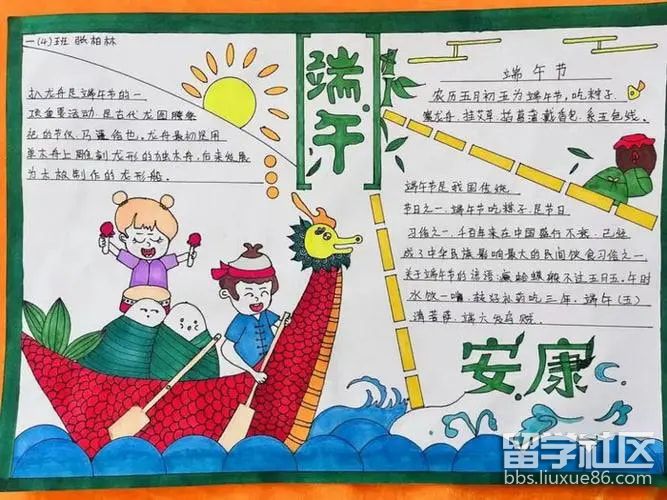 一(4)班 张柏林
扒龙舟是端午节的一
项重要活动,是古代龙图腾祭
祀的节仪,乃遗俗也。龙舟最初是用
单木舟上雕刻龙形的独木舟,后来发展
为木板制作的龙形船。
端午
端午节
农历五月初五为端午节,吃粽子
赛龙舟、挂艾草、插菖蒲、戴香包、系五色线。
端午节是我国传统
节日之一,端午节吃粽子,是节日
习俗之一,千百年来在中国盛行不衰,已经
成了中华民族影响最大的民间饮食习俗之一
关于端午节的谚语:癞蛤蟆躲不过五月五。午时
水饮一嘴,较好补药吃三年。端午(五)
请菩萨,端六发乌贼。
安康
留学社区
bbs.liuxue86.com